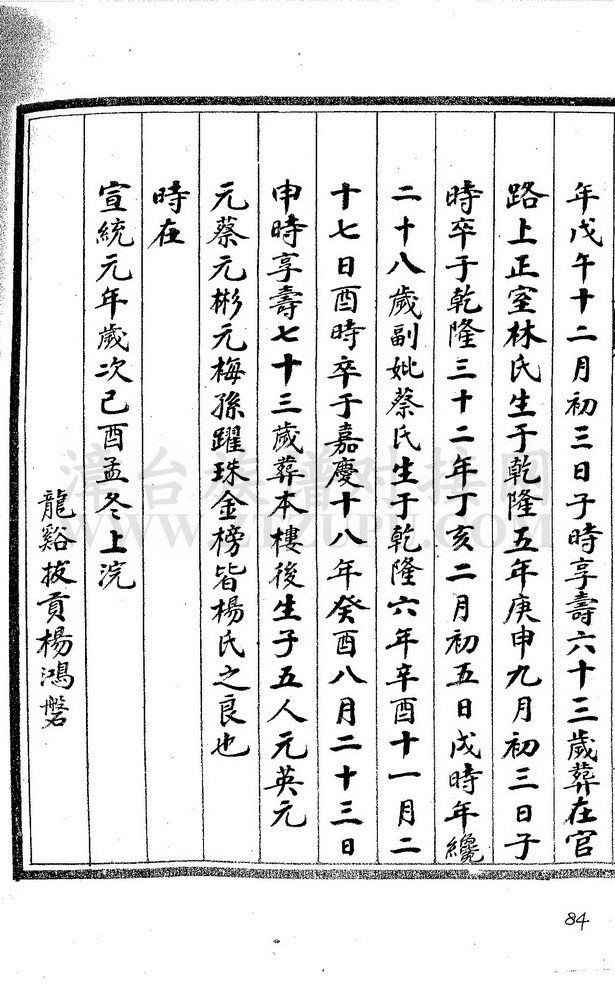 年戊午十二月初三日子時享壽六十三歲葬在官
路上正室林氏生于乾隆五年庚申九月初三日子
時卒于乾隆三十二年丁亥二月初五日戌時年纔
二十八歲副妣蔡氏生于乾隆六年辛酉十一月二
十七日酉時卒于嘉慶十八年癸酉八月二十三日
申時享壽七十三歲葬本樓後生子五人元英元
元蔡元彬元梅孫躍珠金榜皆楊氏之良也
時在
宣統元年歲次己酉孟冬上浣
龍谿拔貢楊鴻磐
漳台族譜对接网
WWW.ZTZUPU.COM
84